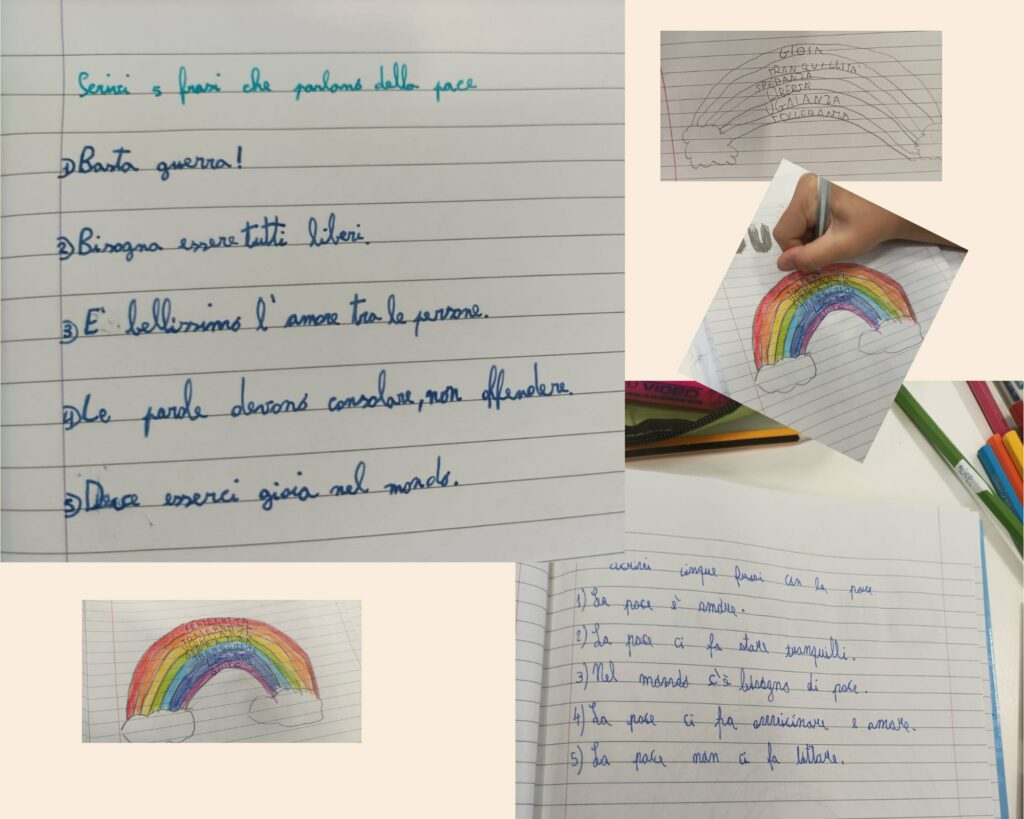 Scrivi 5 frasi che parlano della pace
1) Basta guerra!
2) Bisogna essere tutti liberi.
3) E' bellissimo l'amore tra le persone.
4) Le parole devono consolare, non offendere.
5) Deve esserci gioia nel mondo.
GIOIA
TRANQUILLITÀ
SPERANZA
LIBERTÀ
UGALIANZA
TOLLERANZA
U
VIDEO
FRATELLITÀ
TOLLERANZA
scrivi cinque frasi con la pace
1) La pace è amore.
2) La pace ci fa stare tranquilli.
3) Nel mondo c'è bisogno di pace.
4) La pace ci fa avvicinare e amare.
5) La pace non ci fa lottare.